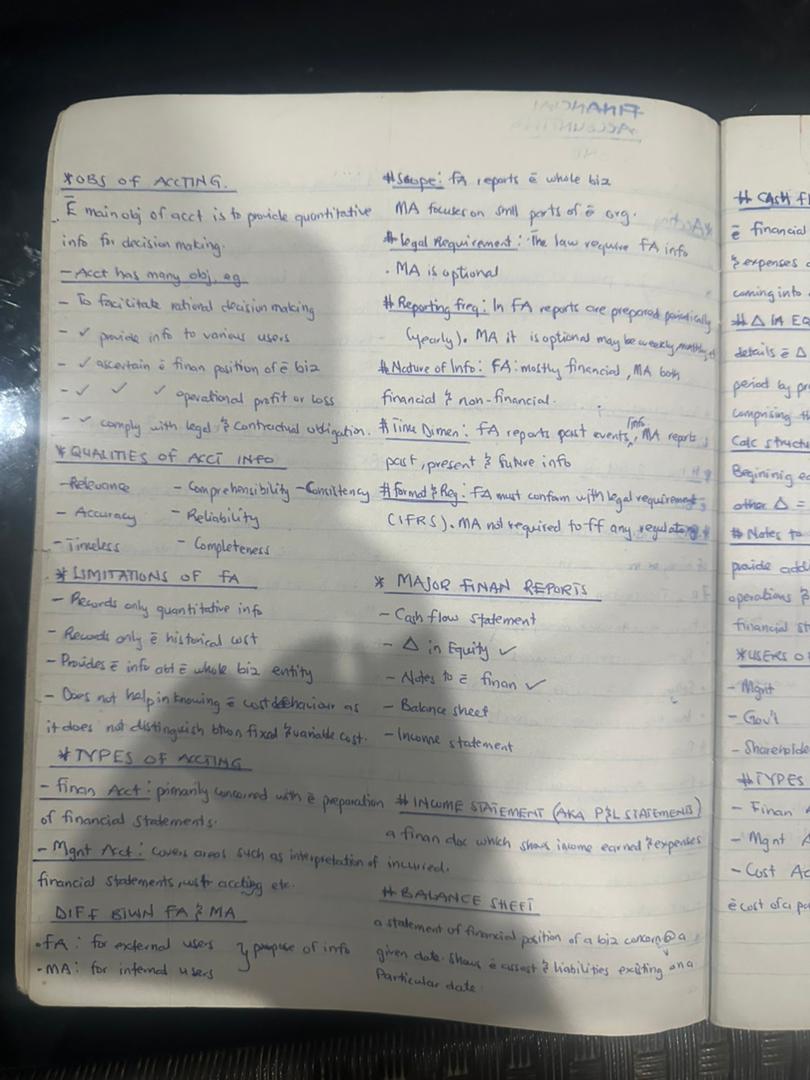 *OBS OF ACCTING.
ē main obj of acct is to provide quantitative
info for decision making.
- Acct has many obj, eg
- To facilitate rational decision making
- ✓ provide info to various users
- ✓ ascertain ē finan position of ē biz
- ✓ ✓ ✓ operational profit or loss
- ✓ comply with legal & contractual obligation.
*QUALITIES OF ACCT INFO
- Relevance - Comprehensibility - Consistency
- Accuracy - Reliability
- Timeless - Completeness
*LIMITATIONS OF FA
- Records only quantitative info
- Records only ē historical cost
- Provides ē info abt ē whole biz entity
- Does not help in knowing ē cost behaviour as
it does not distinguish btwn fixed & variable cost.
*TYPES OF ACCTING
- Finan Acct: primarily concerned with ē preparation
of financial statements.
- Mgnt Acct: covers areas such as interpretation of
financial statements, accting etc.
DIFF BTWN FA & MA
• FA: for external users } purpose of info
• MA: for internal users
# Scope: FA reports ē whole biz
MA focuses on small parts of ē org.
# legal Requirement: The law require FA info
. MA is optional
# Reporting freq: In FA reports are prepared periodically
(yearly). MA it is optional may be weekly, monthly
# Nature of Info: FA: mostly financial, MA both
financial & non-financial.
# Time Dimen: FA reports past events info, MA reports
past, present & future info
# Format & Reg: FA must confam with legal requirement
(IFRS). MA not required to ff any regulatory
* MAJOR FINAN REPORTS
- Cash flow statement
- Δ in Equity ✓
- Notes to ē finan ✓
- Balance sheet
- Income statement
# INCOME STATEMENT (AKA P&L STATEMENTS)
a finan doc which shows income earned & expenses
incurred.
# BALANCE SHEET
a statement of financial position of a biz concern @ a
given date. Shows ē assest & liabilities existing on a
Particular date.
# CASH F
ē financial
& expenses
coming into
# Δ IN EQ
details ē Δ
period by pr
comprising th
Calc struct
Begininig e
other Δ =
# Notes to
provide add
operations &
financial st
*USERS O
- Mgnt
- Gov't
- Shareholde
#TYPES
- Finan
- Mgnt A
- Cost Ac
ē cost of a p